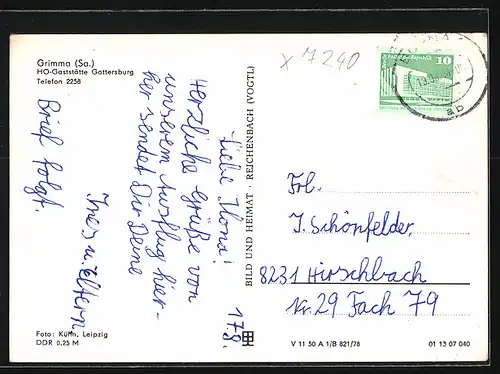 Grimma (Sa.)
HO-Gaststätte Gattersburg
Telefon 2258
x 7240
10
ab
17.8.
Liebe Ilona!
Herzliche Grüße von
unserem Ausflug hier-
her sendet Dir Deine
Ines u. Eltern
Brief folgt.
BILD UND HEIMAT · REICHENBACH (VOGTL)
Frl.
I. Schönfelder
8231 Hirschbach
Nr. 29 Fach 79
Foto: Kühn, Leipzig
DDR 0,25 M
V 11 50 A 1/B 821/78
01 13 07 040